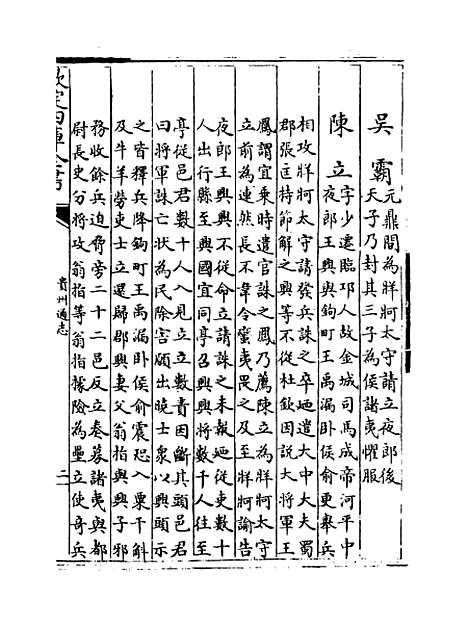 吳霸元鼎間為牂牁太守請立夜郎後
天子乃封其三子為侯諸夷懼服
陳立字少遷臨邛人故金城司馬成帝河平中
夜郎王興與鉤町王禹漏卧侯俞更舉兵
相攻牂牁太守請發兵誅之卒廼遣大中大夫蜀
郡張匡持節解之興等不從杜欽因說大將軍王
鳳謂宜乘時遣官誅之鳳乃薦陳立為牂牁太守
立前為連然長不韋令蠻夷畏之及至牂牁諭告
夜郎王興興不從命立請誅之未報廼從吏數十
人出行縣至興國宜同亭召興興將數千人往至
亭從邑君數十人入見立立數責因斷其頭邑君
曰將軍誅亡狀為民除害願出曉士衆以興頭示
之皆釋兵降鉤町王禹漏卧侯俞震恐入粟千斛
及牛羊勞吏士立還歸郡興妻父翁指與興子邪
務收餘兵迫脅旁二十二邑反立奏募諸夷與都
尉長史分將攻翁指等翁指據險為壘立使奇兵
欽定四庫全書
貴州通志
二